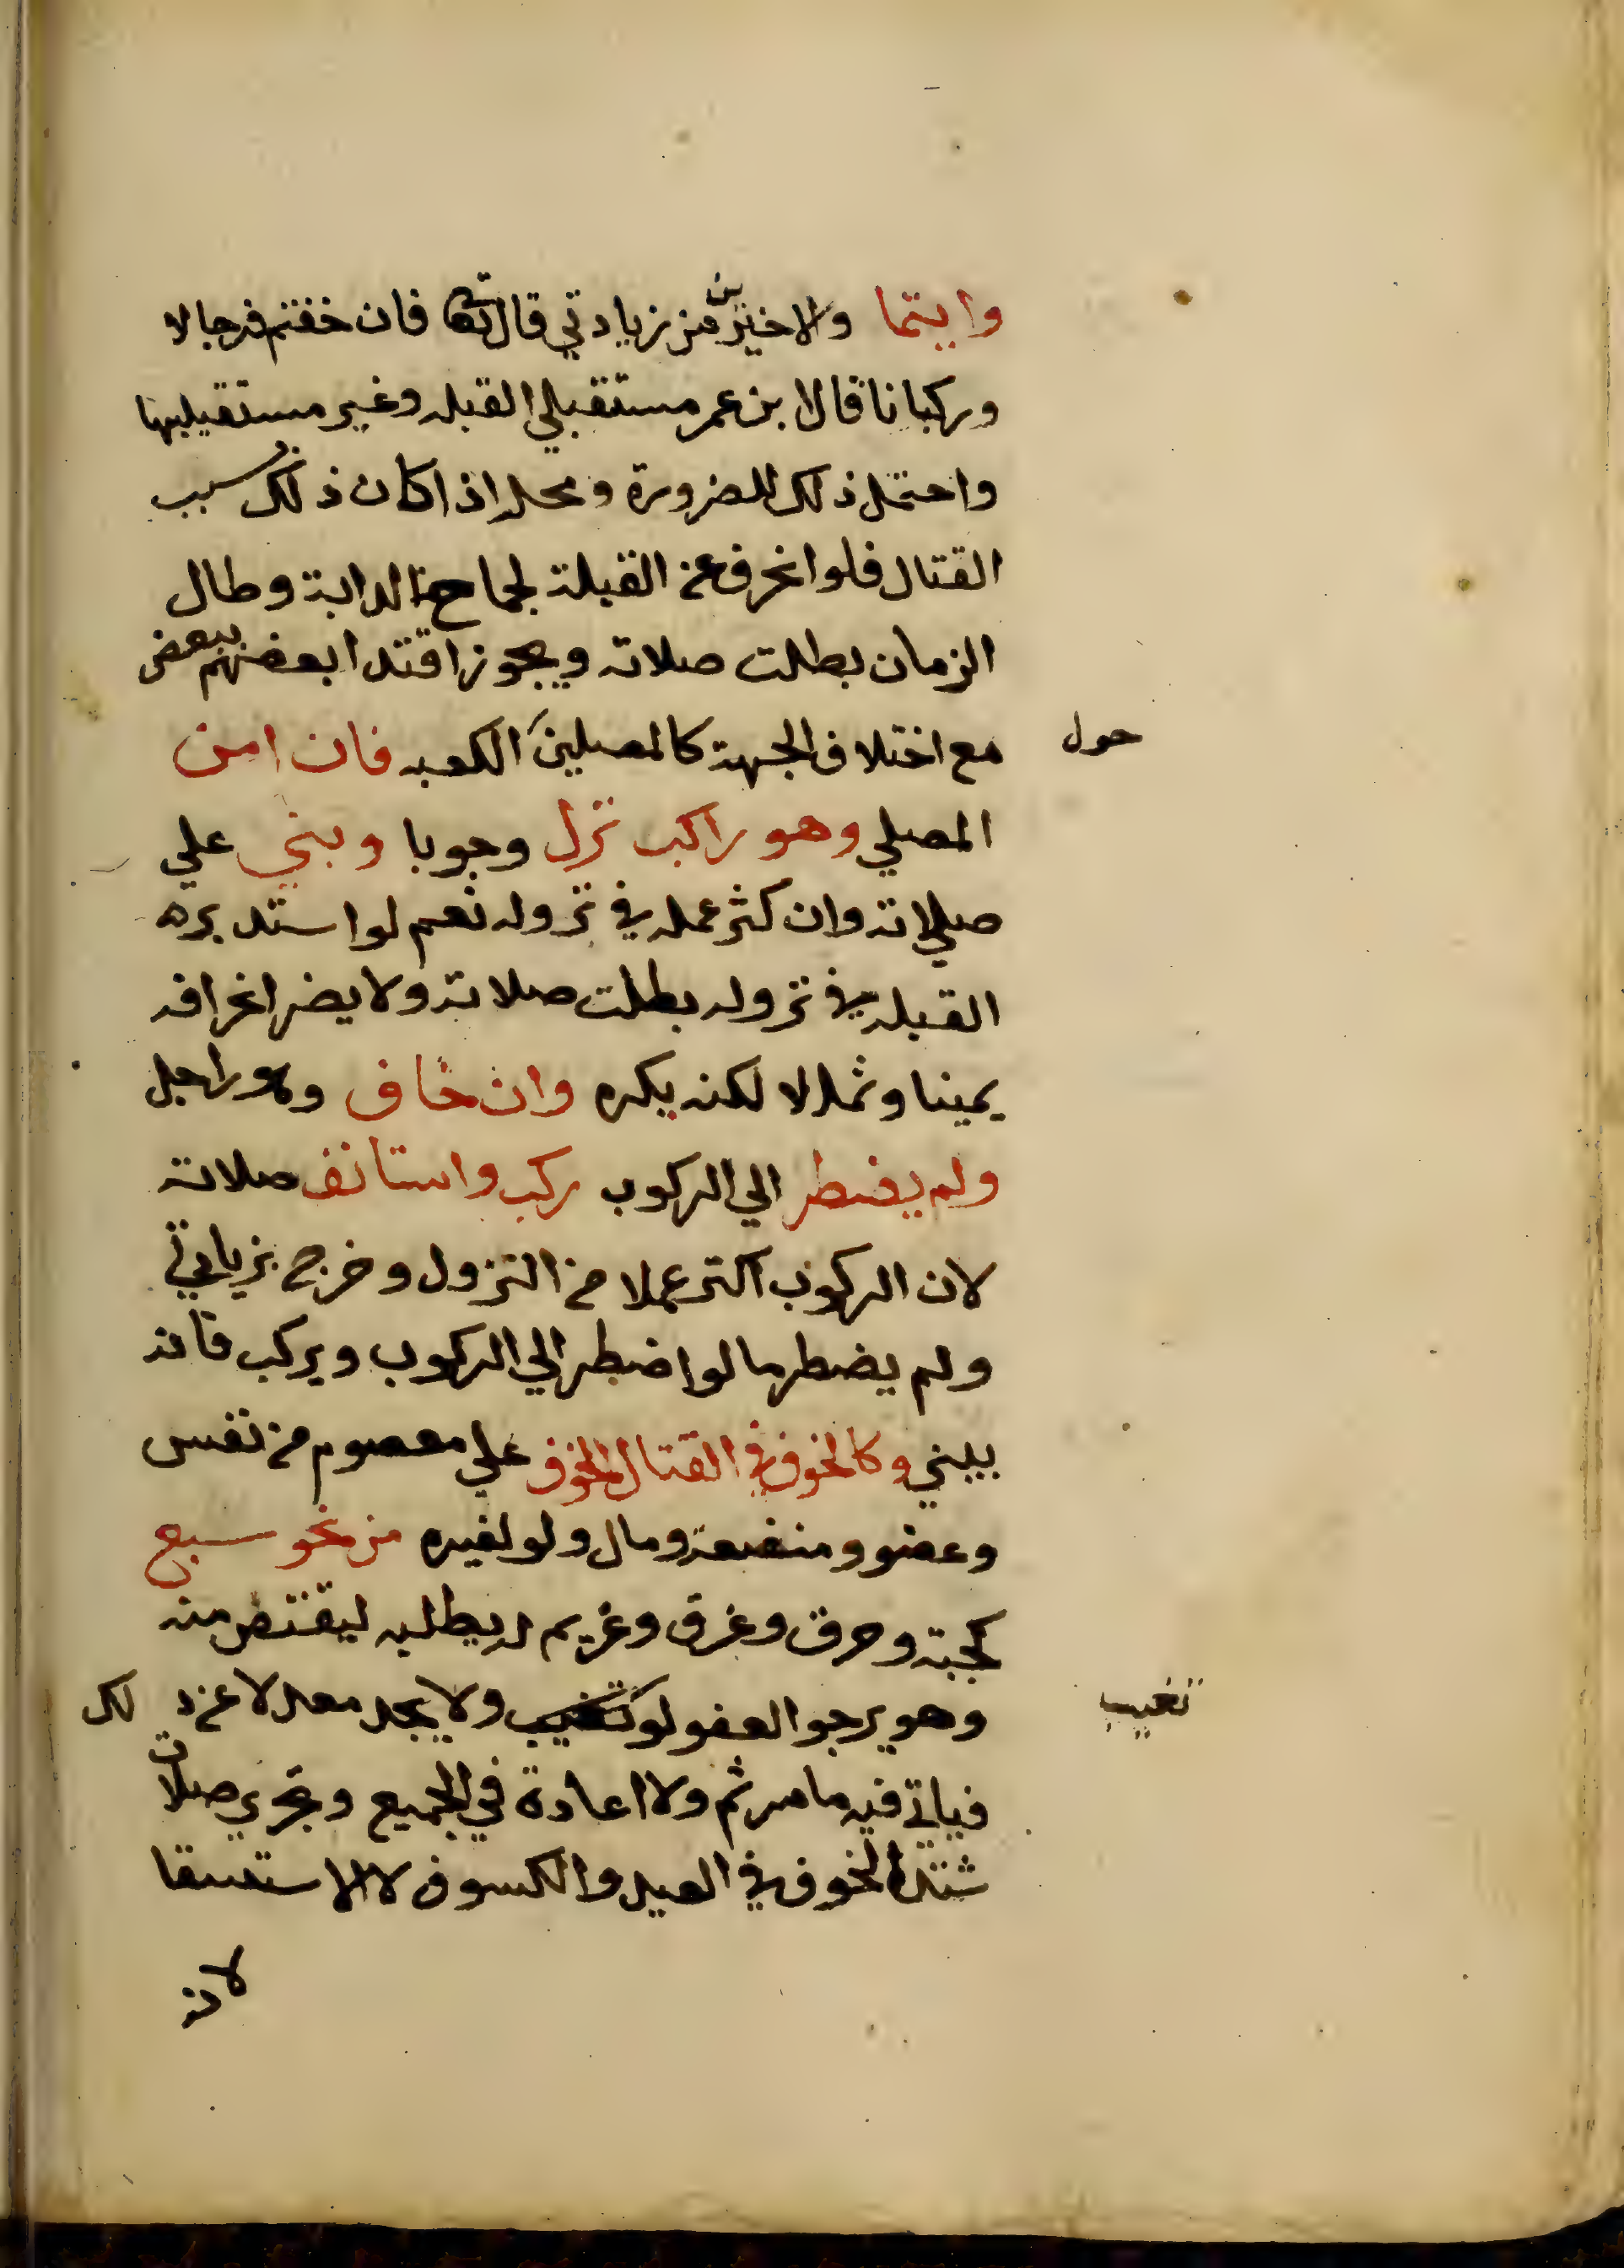 وايتما والاخيرين من زيادتي قال تعالى فان خفتم فرجالا
وركبانا قال ابن عمر مستقبلي القبله وغير مستقبليها
واحتمل ذلك للضرورة ومحله اذا كان ذلك بسبب
القتال فلو انحرف عن القبلة لجماح الدابة وطال
الزمان بطلت صلاته ويجوز اقتدا بعضهم ببعض
مع اختلاف الجهة كالمصلين الكعبه فان امن
حول
المصلي وهو راكب نزل وجوبا وبني علي
صلاته وان كثر عمله في نزوله نعم لو استدبره
القبله في نزوله بطلت صلاته ولا يضر انحرافه
يمينا وشمالا لكنه يكره وان خاف وهو راجل
ولم يضطر الي الركوب ركب واستانف صلاته
لان الركوب اكثر عملا من النزول وخرج بزيادتي
ولم يضطر ما لو اضطر الي الركوب ويركب فانه
يبني وكالخوف في القتال الخوف علي معصوم من نفس
وعضو ومنفعة ومال ولو لغيره من نحو سبع
كحية وحرق وغرق وغريم له يطلبه ليقتص منه
وهو يرجو العفو لو تغيب ولا يجد معدلا عن ذلك
تغيب
فياتي فيه ما مر ثم ولا اعادة في الجميع وتجري صلات
شتدا الخوف في العيد والكسوف لا الاستسقا
لانه